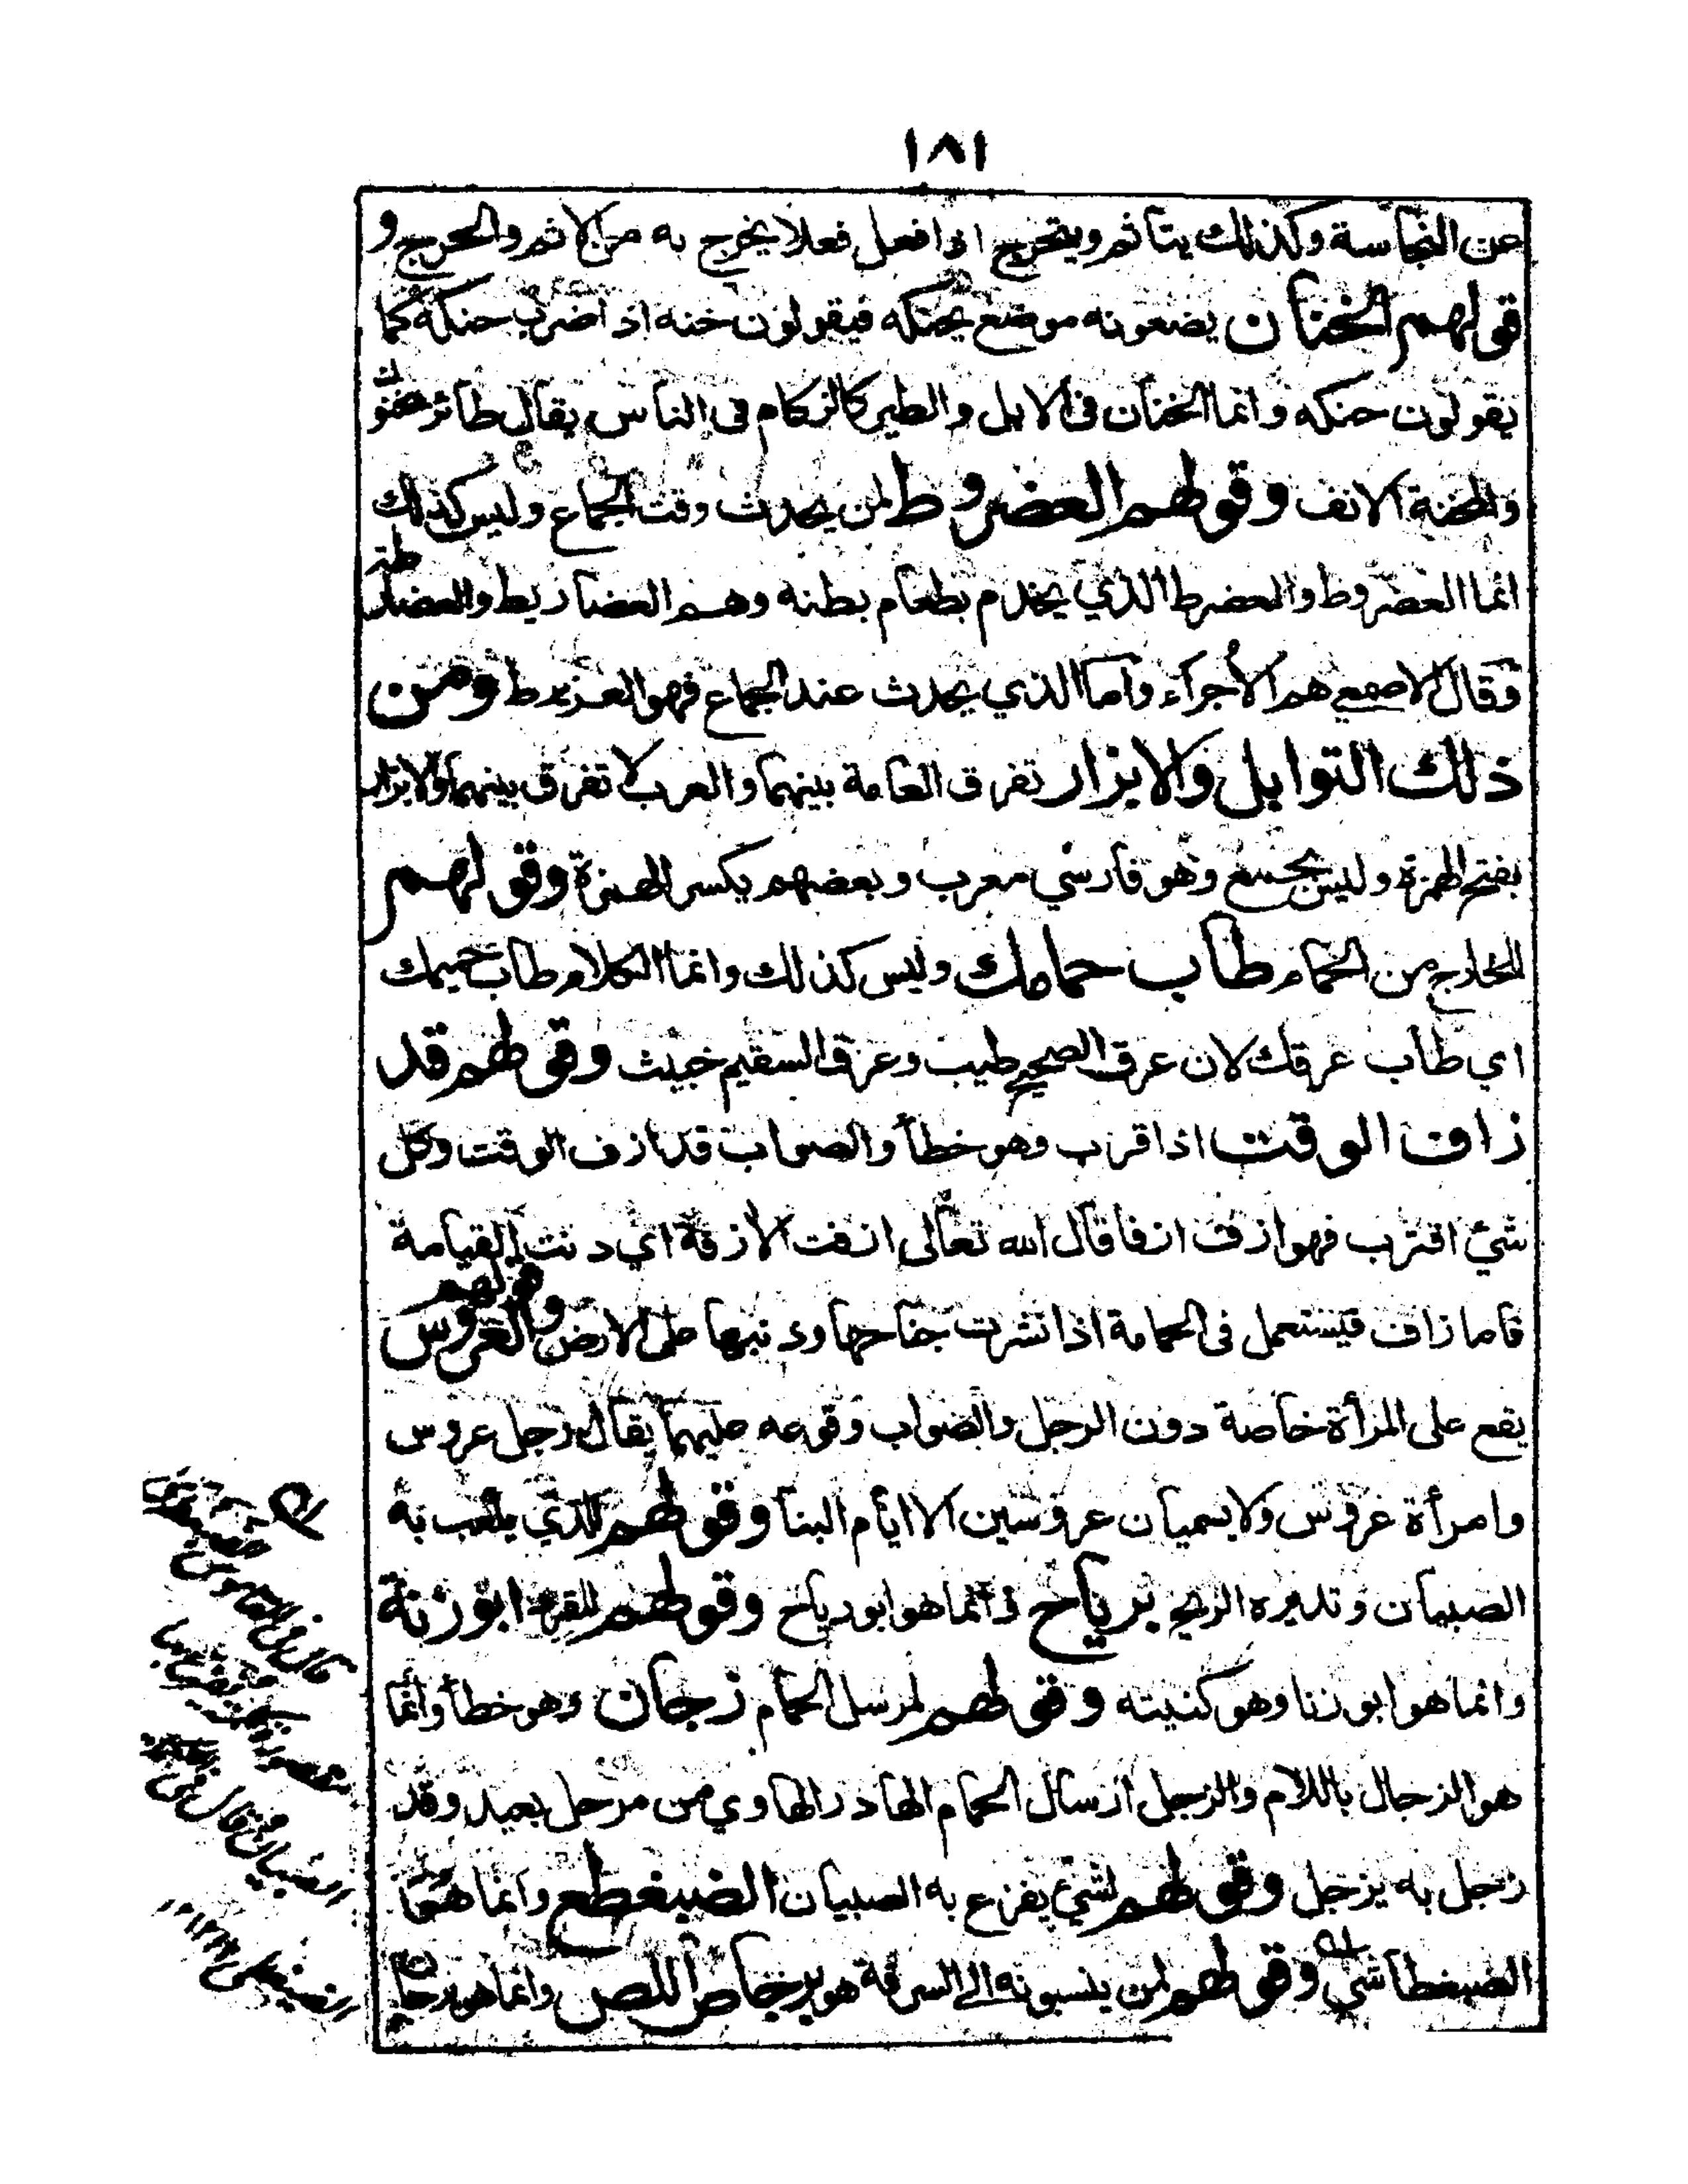 ١٨١
عن النجاسة وكذلك يتأثم ويتحرج اذا فعل فعلا يخرج به من الاثم والحرج و
قولهم الخنان يضعونه موضع يحنكه فيقولون خنه اذا ضرب حنكه كما
يقولون حنكه وانما الخنان في الابل والطير كالزكام في الناس يقال طائر مخنون
والمخنة الانف وقولهم العضروط لمن يحدث وقت الجماع وليس كذلك
انما العضروط والعضرط الذي يخدم بطعام بطنه وهم العضاريط والعضارطة
وقال الاصمعي هم الأجراء واما الذي يحدث عند الجماع فهو العذيوط ومن
ذلك التوابل والابزار تفرق العامة بينهما والعرب لا تفرق بينهما والابزار
بفتح الهمزة وليس بجمع وهو فارسي معرب وبعضهم يكسر الهمزة وقولهم
للخارج من الحمام طاب حمامك وليس كذلك وانما الكلام طاب حميمك
اي طاب عرقك لان عرق الصحيح طيب وعرق السقيم خبيث وقولهم قد
زاف الوقت اذا قرب وهو خطأ والصواب قد ازف الوقت وكل
شيء اقترب فهو ازف ازفا قال الله تعالى ازفت الازفة اي دنت القيامة
فاما زاف فيستعمل في الحمامة اذا نشرت جناحها وذنبها على الارض وقولهم والعروس
يقع على المرأة خاصة دون الرجل والصواب وقوعه عليهما يقال رجل عروس
وامرأة عروس ولا يسميان عروسين الا ايام البنا وقولهم للذي يلعب به
الصبيان وتديره الريح برياح وانما هو ابو رياح وقولهم للقرد ابو زنة
وانما هو ابو زنا وهو كنيته وقولهم لمرسل الحمام زجان وهو خطأ وانما
هو الزجال باللام والزجل ارسال الحمام الهادر الهاوي من مرحل بعيد وقد
زجل به يزجل وقولهم لشيء يفزع به الصبيان الضبغطع وانما هو
الضبغطا شيء وقولهم لمن ينسبونه الى السرقة هو برجاص اللص وانما هو برجان
قال في القاموس